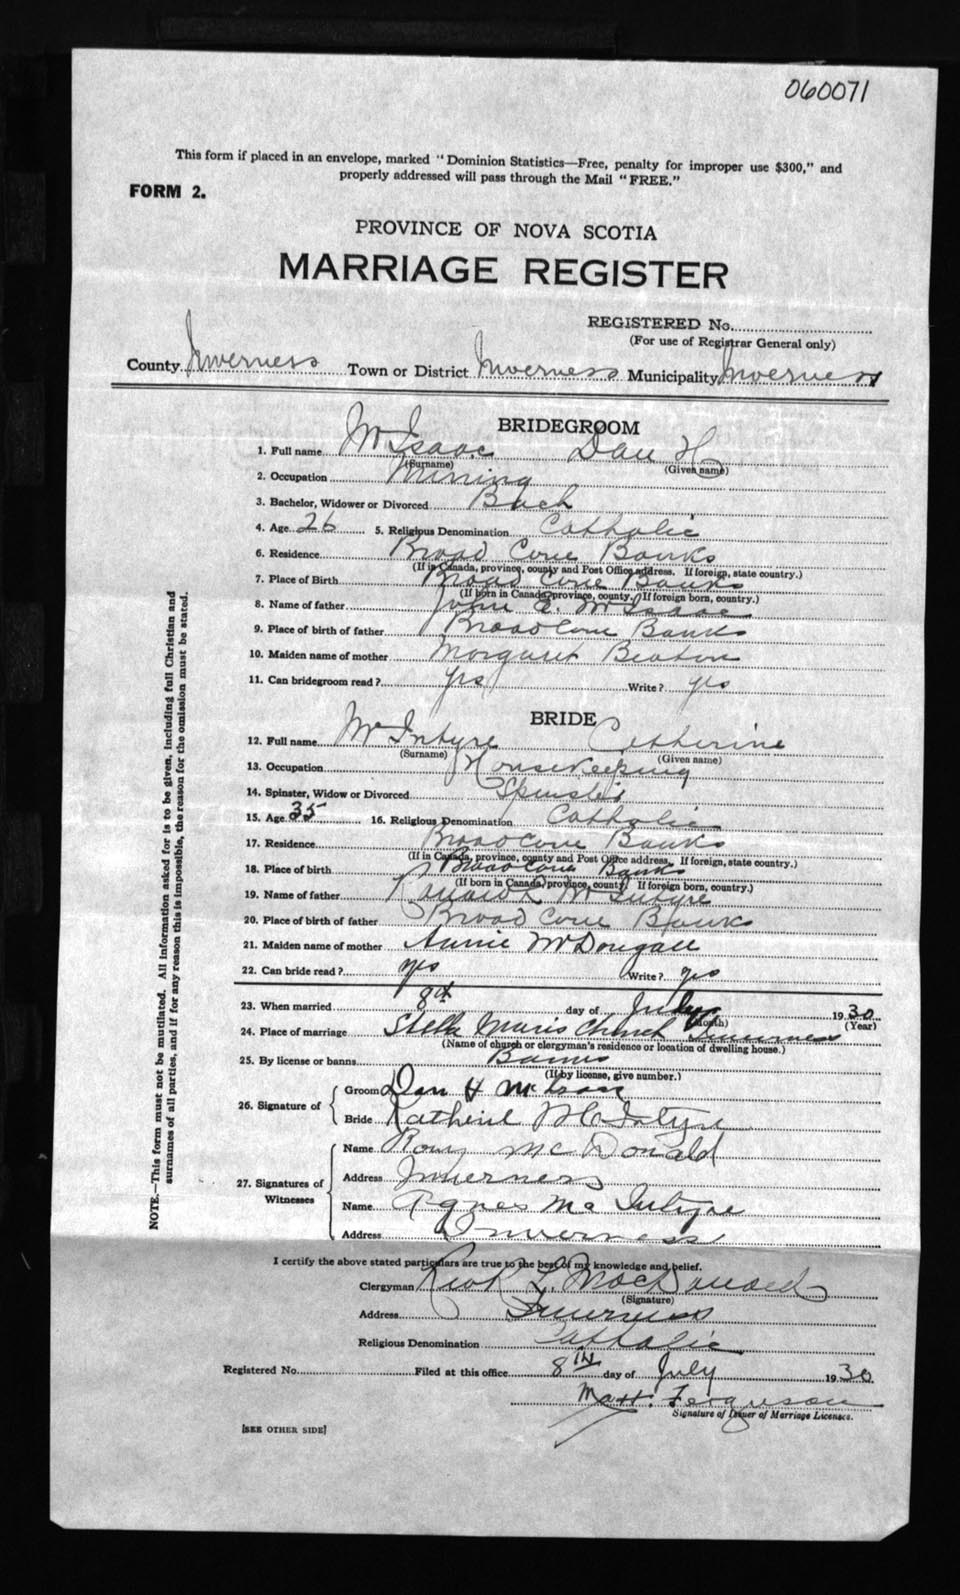 060071
This form if placed in an envelope, marked "Dominion Statistics—Free, penalty for improper use $300," and
properly addressed will pass through the Mail "FREE."
FORM 2.
PROVINCE OF NOVA SCOTIA
MARRIAGE REGISTER
REGISTERED No.
(For use of Registrar General only)
County Inverness Town or District Inverness Municipality Inverness
BRIDEGROOM
1. Full name McIsaac Dan H
(Surname) (Given name)
2. Occupation Mining
3. Bachelor, Widower or Divorced Bach
4. Age 26 5. Religious Denomination Catholic
6. Residence Broad Cove Banks
(If in Canada, province, county and Post Office address. If foreign, state country.)
7. Place of Birth Broad Cove Banks
(If born in Canada, province, county. If foreign born, country.)
8. Name of father John A. McIsaac
9. Place of birth of father Broad Cove Banks
10. Maiden name of mother Margaret Beaton
11. Can bridegroom read? yes Write? yes
BRIDE
12. Full name McIntyre Catherine
(Surname) (Given name)
13. Occupation Housekeeping
14. Spinster, Widow or Divorced Spinster
15. Age 35 16. Religious Denomination Catholic
17. Residence Broad Cove Banks
(If in Canada, province, county and Post Office address. If foreign, state country.)
18. Place of birth Broad Cove Banks
(If born in Canada, province, county. If foreign born, country.)
19. Name of father Ronald McIntyre
20. Place of birth of father Broad Cove Banks
21. Maiden name of mother Annie McDougall
22. Can bride read? yes Write? yes
23. When married 8th day of July 1930
(Month) (Year)
24. Place of marriage Stella Maris Church Inverness
(Name of church or clergyman's residence or location of dwelling house.)
25. By license or banns Banns
(If by license, give number.)
26. Signature of
Groom Dan H McIsaac
Bride Katherine McIntyre
27. Signatures of Witnesses
Name Rory McDonald
Address Inverness
Name Agnes McIntyre
Address Inverness
I certify the above stated particulars are true to the best of my knowledge and belief.
Clergyman Rev R. L. MacDonald
(Signature)
Address Inverness
Religious Denomination Catholic
Registered No. Filed at this office 8th day of July 1930
Matt. Ferguson
Signature of Issuer of Marriage Licenses.
[SEE OTHER SIDE]
NOTE.—This form must not be mutilated. All information asked for is to be given, including full Christian and
surnames of all parties, and if for any reason this is impossible, the reason for the omission must be stated.